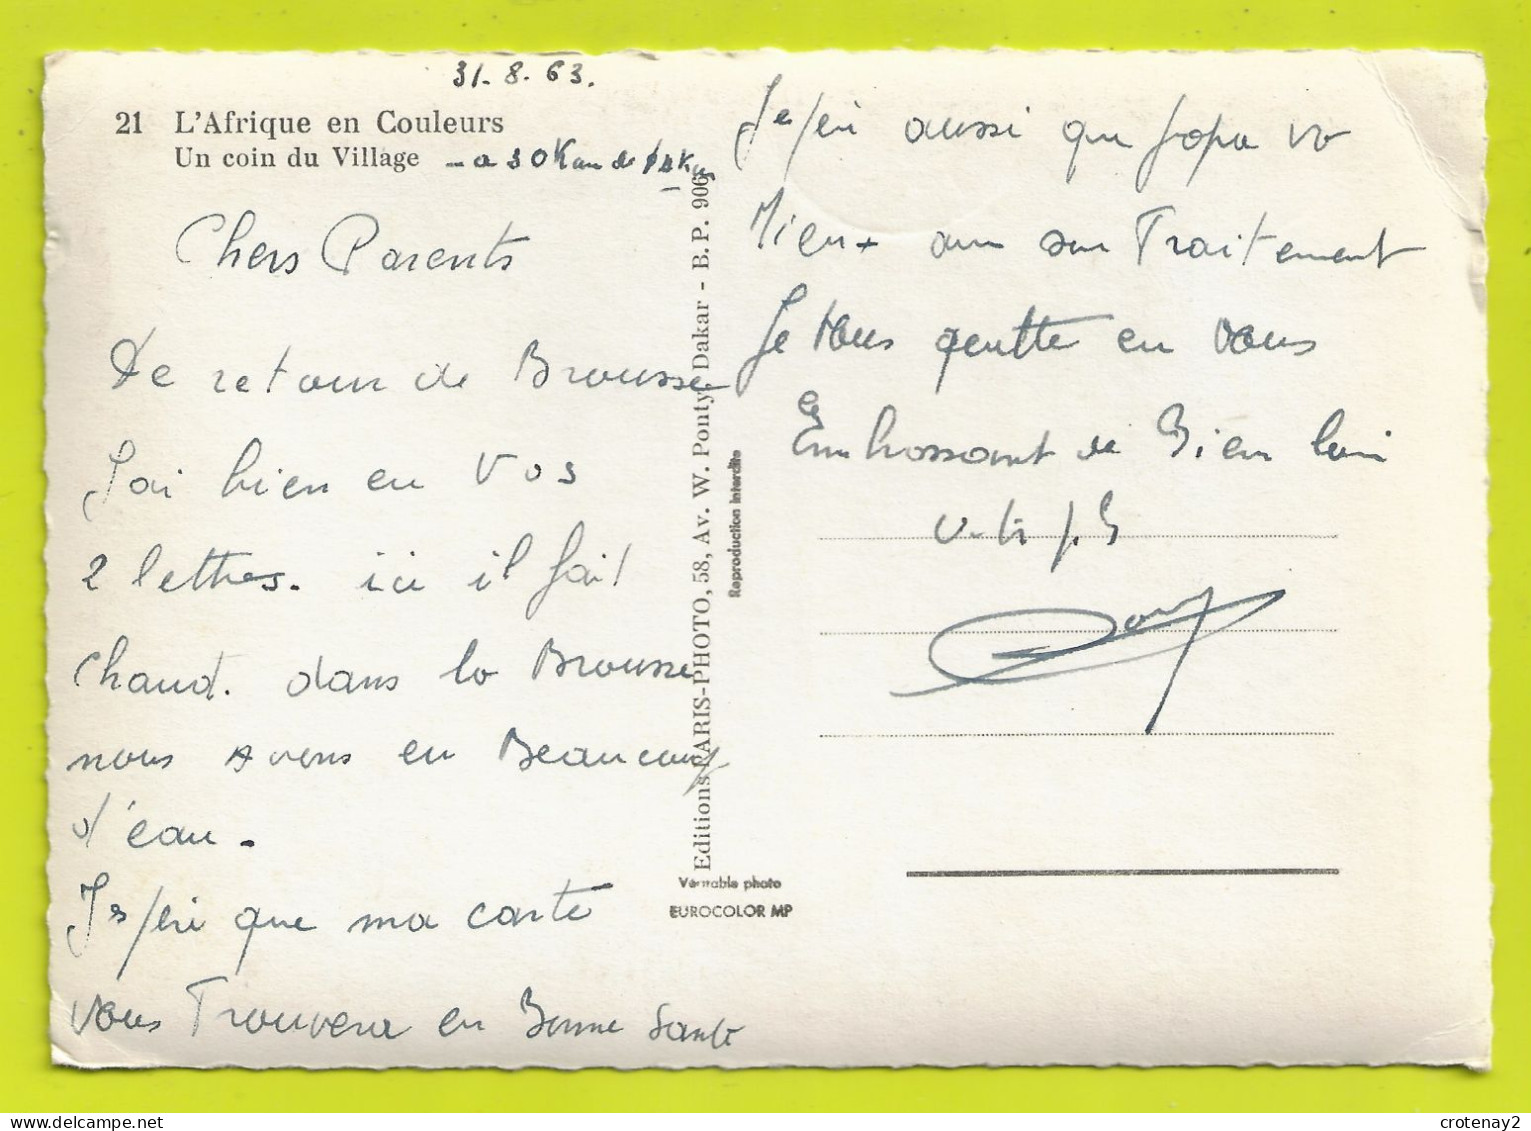 31-8-63.
21 L'Afrique en Couleurs
Un coin du Village - a 30 Km de
Chers Parents
De retour de Brousse
J'ai bien eu Vos
2 lettres. ici il fait
Chaud. dans la Brousse
nous Avons eu Beaucoup
d'eau.
que ma carte
vous Trouvera en Bonne Santé
aussi que papa va
Mieux avec son Traitement
Je vous quitte en vous
Embrassant de Bien loin
Editions PARIS-PHOTO, 58, Av. W. Ponty, Dakar - B.P. 906
Reproduction interdite
Véritable photo
EUROCOLOR MP
crotenay2